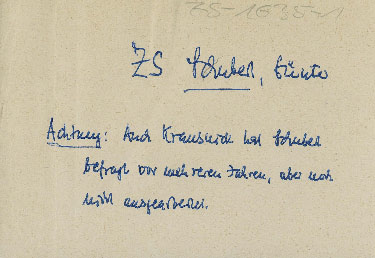 ZS-1635-1
ZS Schubert, Günter
Achtung: Auch Krausnick hat Schubert
befragt vor mehreren Jahren, aber noch
nicht ausgearbeitet.